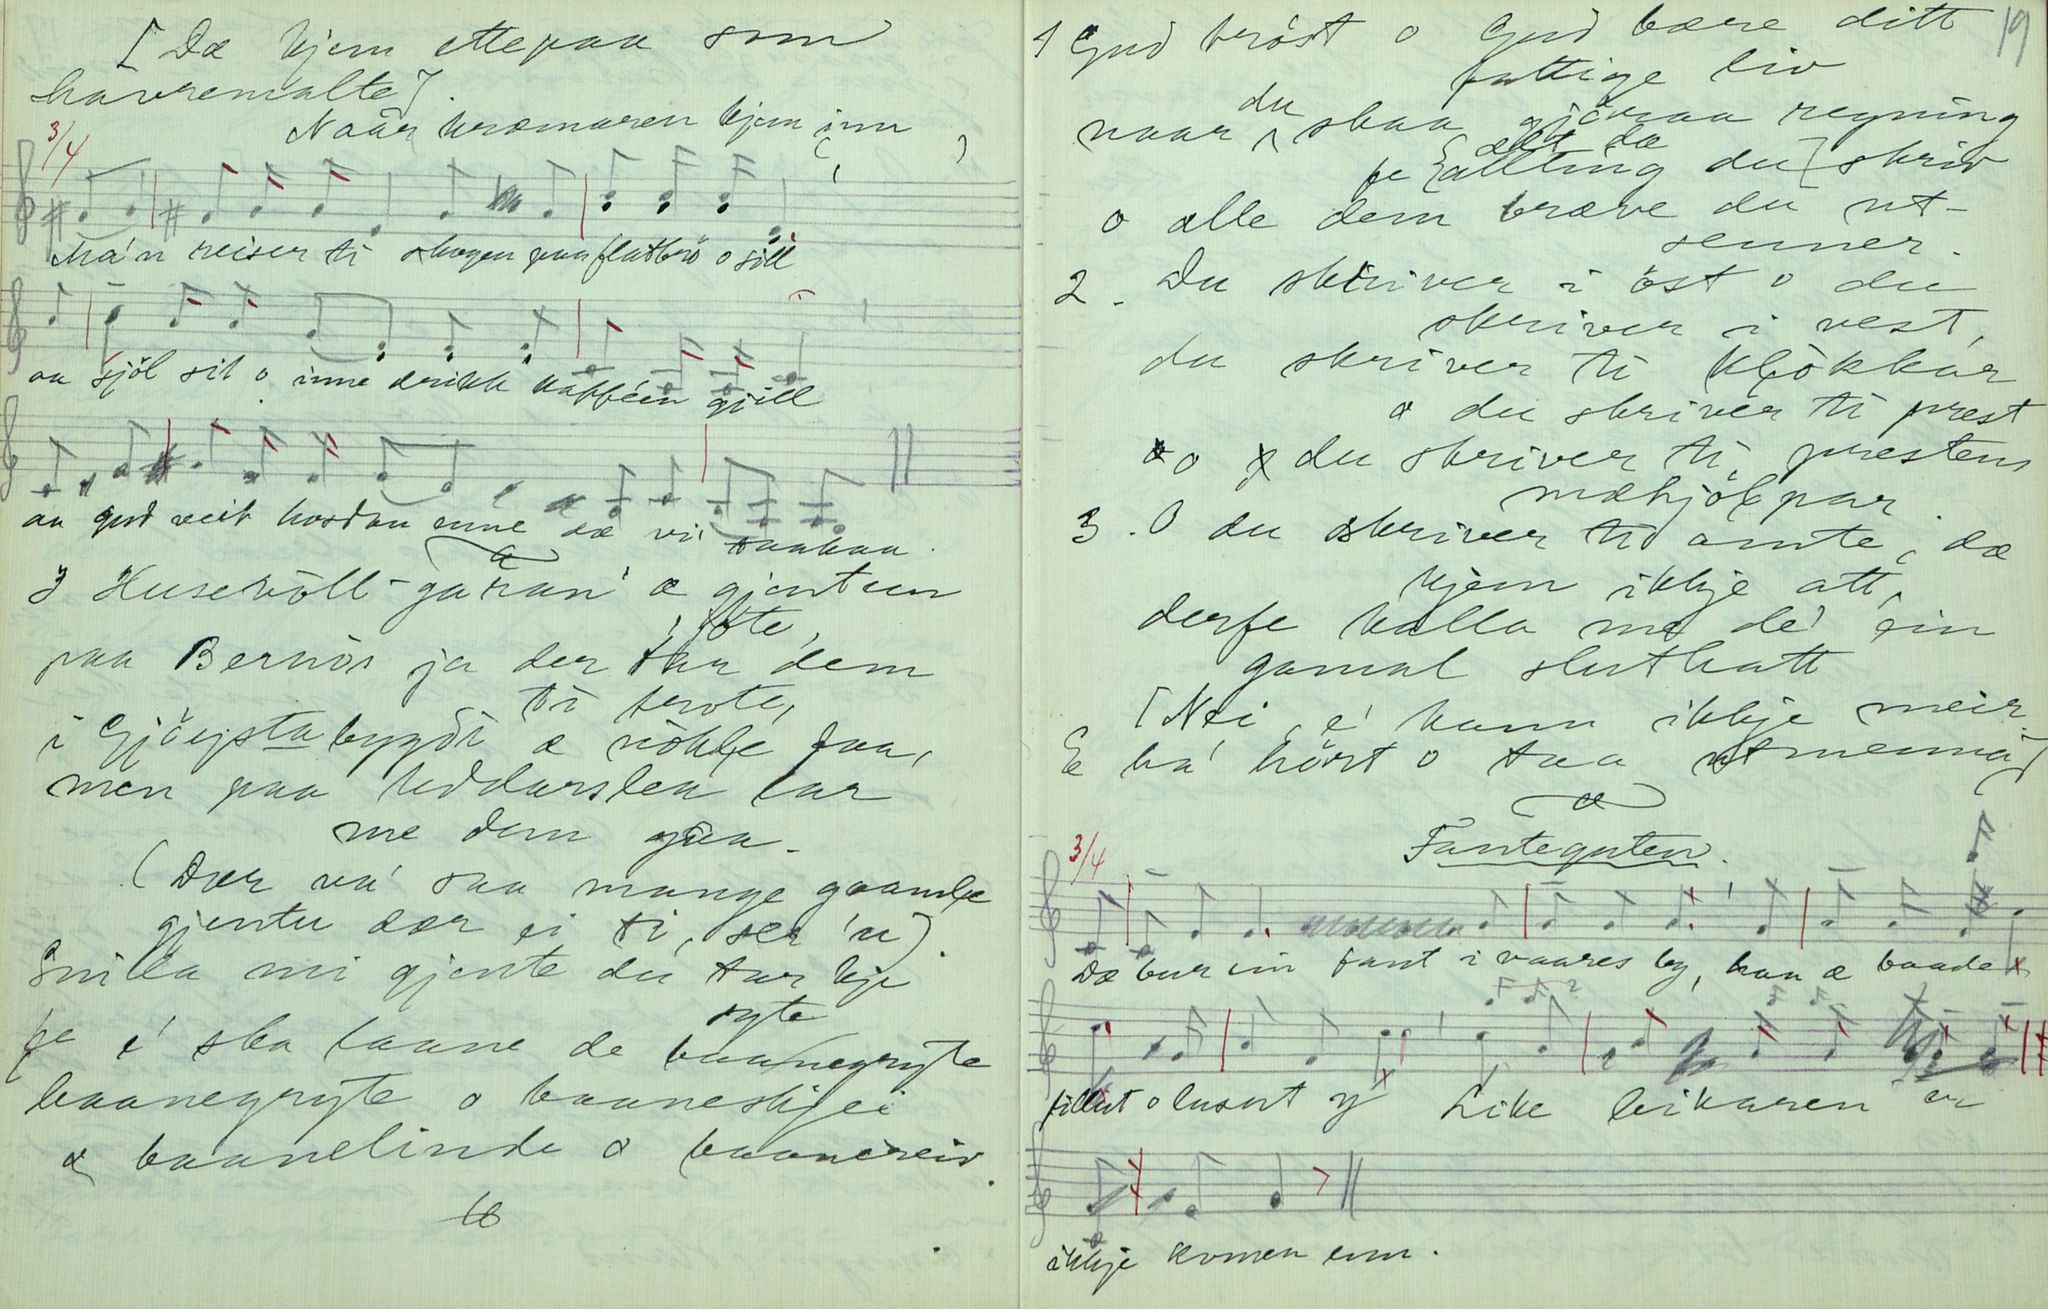 [Dæ kjem ettepaa som
havremalte].
Naar kræmaren kjem inn
3/4
ha'n reiser ti skogen paa flatbrö o sill
aa sjöl sit o inne drikk kaffeen gjill
aa gud veit hosdan inne dæ vi taakaa.
I Husevöll-garan' æ gjentun
föte,
paa Bernös ja der tar dem
ti terote,
i Gjöigstabygdi æ nökle faa,
men paa Uddarslea lar
me dem gaa.
(Dær va' saa mange gaamle
gjentu dær ei ti, ser 'u).
Snilla mi gjente du tar kje
syte
fe e' ska laane de baanegryte
baanegryte o baaneskjei
o baanelinde o baanereiv.
19
1 Gud tröst o Gud bære ditt
fattige liv
naar du skaa gjöraa regning
ælt dæ
fe [allting du] skriv
o alle dem bræve du ut-
senner.
2. Du skriver i öst o du
skriver i vest,
du skriver ti klökkar
o du skriver ti prest
o du skriver ti prestens
mæhjölpar
3. O du skriver ti amte, dæ
kjem ikkje att,
derfe kalla me de' ein
gamal slusthatt
[Nei, e' kann ikkje meir.
E ha' hört o taa utmenna]
Fanteguten.
3/4
Dæ bur ein fant i vaares by, han æ baade
fillut o lusut y Like leikaren er
ikkje komen enn.